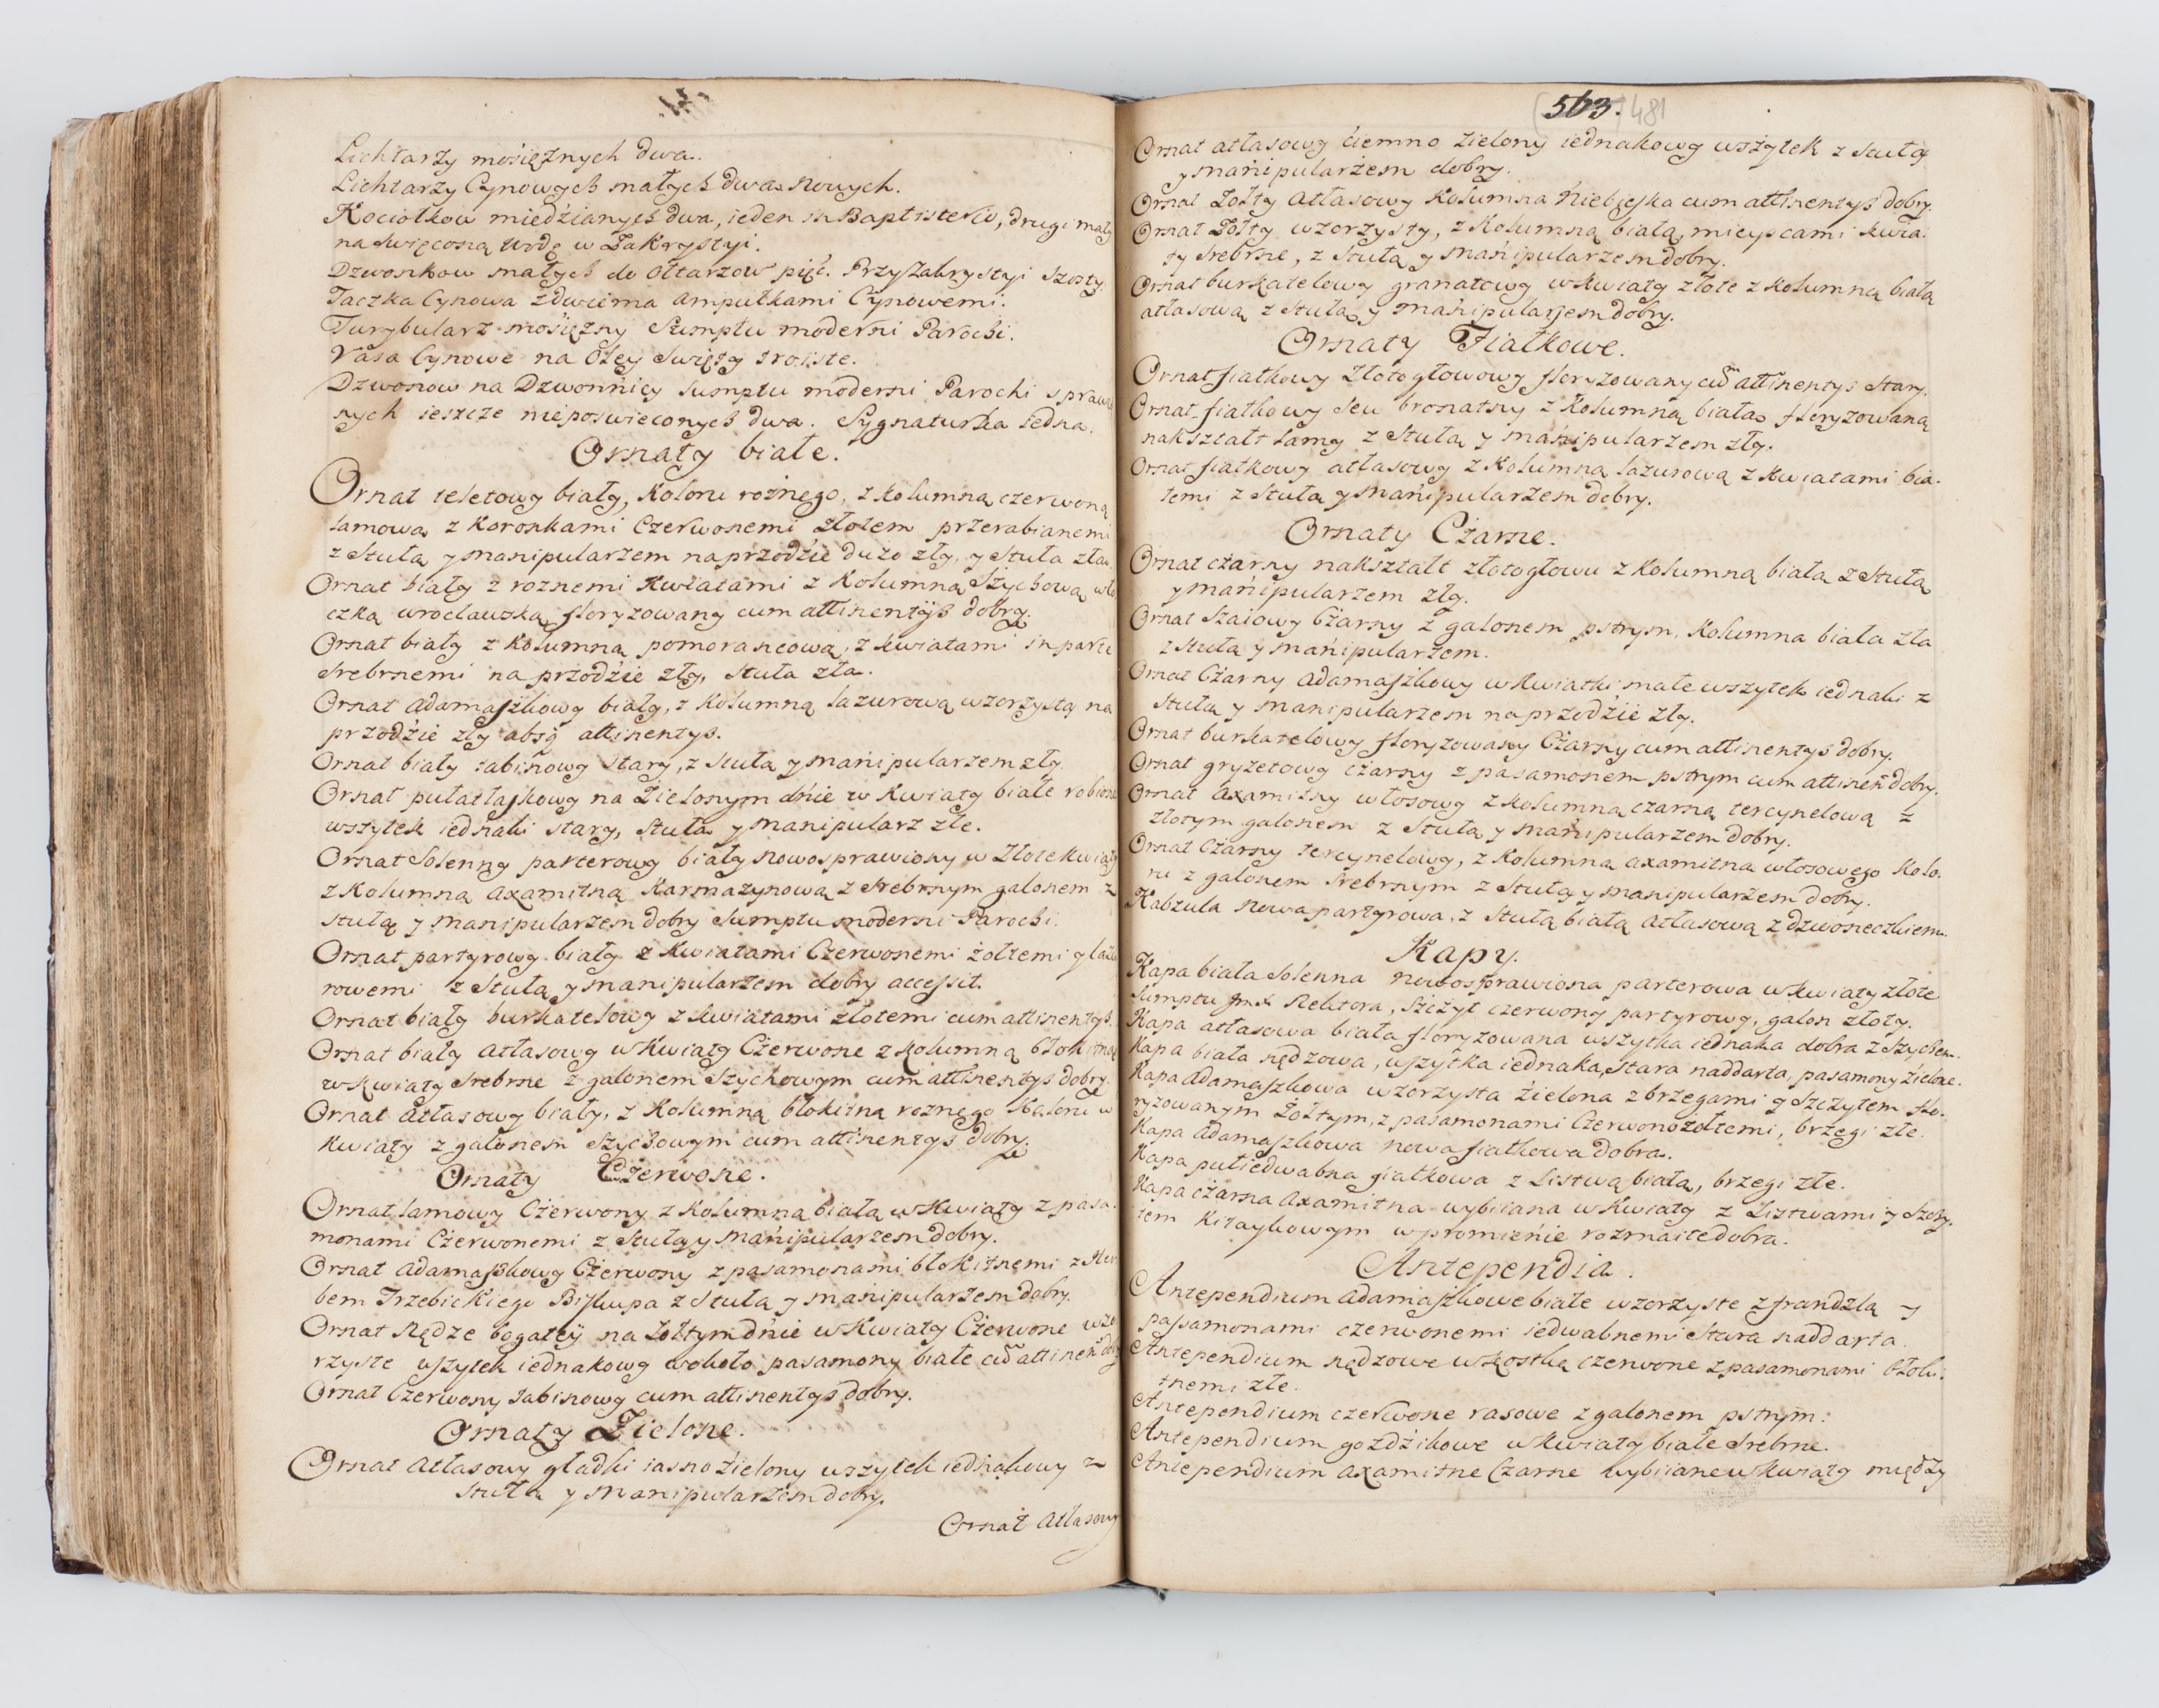 Lichtarzy mosiężnych dwa.
Lichtarzy Cynowych małych dwa nowych.
Kociołkow miedźianych dwa, ieden in Baptisterio, drugi mały
na święconą wodę w Zakrystyi.
Dzwonkow małych do ołtarzow pięć. Przy Zakrystyi Szosty.
Taczka Cynowa z dwiema ampułkami Cynowemi.
Turybularz mosiężny Sumptu moderni Parochi.
Vasa Cynowe na Oley Swięty troiste.
Dzwonow na Dzwonnicy sumptu moderni Parochi sprawio
nych ieszcze nieposwieconych dwa. Sygnaturka iedna.
Ornaty białe.
Ornat teletowy biały, koloru rożnego, z kolumną czerwoną
lamową z koronkami Czerwonemi złotem przerabianemi
z Stułą y manipularzem naprzodźie dużo zły, y Stuła zła.
Ornat biały z roznemi Kwiatami z Kolumną Szychową włó
czką wrocławską floryzowany cum attinentijs dobry.
Ornat biały z kolumną pomorancową, z kwiatami in parte
srebrnemi na przodźie zły, stuła zła.
Ornat Adamaszkowy biały, z kolumną lazurową wzorzystą na
przodźie zły absq attinentys.
Ornat biały tabinowy stary, z Stułą y manipularzem zły.
Ornat pułatłaskowy na Zielonym dnie w kwiaty białe robione
wszytek iednaki stary, Stuła y Manipularz złe.
Ornat Solenny parterowy biały nowosprawiony w Złote kwiaty
z Kolumną Axamitną Karmazynową z srebrnym galonem z
stułą y Manipularzem dobry Sumptu moderni Parochi.
Ornat partyrowy biały z Kwiatami Czerwonemi żołtemi y lazu
rowemi z Stułą y manipularzem dobry accessit.
Ornat biały burkatelowy z kwiatami złotemi cum attinentys.
Ornat biały Atłasowy w Kwiaty Czerwone z kolumną błokitną
w kwiaty srebrne z galonem Szychowym cum attinentys dobry.
Ornat Atłasowy biały, z Kolumną błokitną roznego Koloru w
kwiaty z galonem Szychowym cum attinentys dobry.
Ornaty Czerwone.
Ornat lamowy Czerwony z Kolumną białą w Kwiaty z pasa-
monami Czerwonemi z Stułą y Manipularzem dobry.
Ornat Adamaszkowy Czerwony z pasamonami błokitnemi z Her
bem Trzebickiego Biskupa z Stułą y manipularzem dobry.
Ornat Rądze bogatey na żołtym dnie w Kwiaty Czerwone wzo
rzyste wszytek iednakowy wokoło pasamony białe cum attinen dobry
Ornat Czerwony tabinowy cum attinentys dobry.
Ornaty Zielone.
Ornat Atłasowy gładki iasno źielony wszytek iednakowy z
stułą y Manipularzem dobry.
Ornat Atłasowy
563. 481
Ornat atłasowy ciemno Zielony iednakowy wszytek z stułą
y manipularzem dobry.
Ornat Zołty Atłasowy Kolumna Niebieska cum attinentys dobry.
Ornat Zołty wzorzysty, z Kolumną białą, mieyscami kwia-
ty srebrne, z Stułą y Manipularzem dobry.
Ornat burkatelowy granatowy w kwiaty złote z Kolumną białą
atłasową z Stułą y Manipularzem dobry.
Ornaty Fiałkowe.
Ornat fiałkowy Złotogłowowy floryzowany cum attinentys Stary.
Ornat fiałkowy seu bronatny z Kolumną białą floryzowaną
nakształt lamy z Stułą y manipularzem zły.
Ornat fiałkowy atłasowy z Kolumną lazurową z kwiatami bia-
łemi z stułą y Manipularzem dobry.
Ornaty Czarne.
Ornat czarny nakształt złotogłowu z kolumną białą z Stułą
y manipularzem zły.
Ornat Szaiowy Czarny z galonem pstrym, Kolumna biała zła
z stułą y manipularzem.
Ornat Czarny Adamaszkowy w kwiatki małe wszytek iednaki z
stułą y Manipularzem na przodźie zły.
Ornat burkatelowy floryzowany Czarny cum attinentys dobry.
Ornat gryzetowy czarny z pasamonem pstrym cum attinen dobry.
Ornat Axamitny włosowy z kolumną czarną tercynelową z
złotym galonem z Stułą y Manipularzem dobry.
Ornat Czarny tercynelowy, z kolumną axamitną włosowego kolo-
ru z galonem srebrnym z Stułą y manipularzem dobry.
Kabzula nowa partyrowa, z Stułą białą atłasową z dzwoneczkiem.
Kapy.
Kapa biała Solenna nowosprawiona parterowa w kwiaty złote
Sumptu Rektora, szczyt czerwony partyrowy, galon złoty.
Kapa atłasowa biała floryzowana wszytka iednaka dobra z Szychem.
Kapa biała rądzowa, wszytka iednaka, stara naddarta, pasamony źielone.
Kapa Adamaszkowa wzorzysta źielona z brzegami y Szczytem flo-
ryzowanym żołtym, z pasamonami Czerwono żołtemi, brzegi złe.
Kapa Adamaszkowa nowa fiałkowa dobra.
Kapa pułiedwabna fiałkowa z Listwą białą, brzegi złe.
Kapa czarna Axamitna wybiiana w kwiaty z Listwami y Szczy-
tem Kitaykowym w promienie rozmaite dobra.
Antependia.
Antependium Adamaszkowe białe wzorzyste z frandzlą y
passamonami czerwonemi iedwabnemi stara naddarta.
Antependium rądzowe w kostkę czerwone z pasamonami błoki-
tnemi złe.
Antependium czerwone rasowe z galonem pstrym:
Antependium gozdźikowe w kwiaty białe srebrne.
Antependium Axamitne Czarne wybiiane w kwiaty między